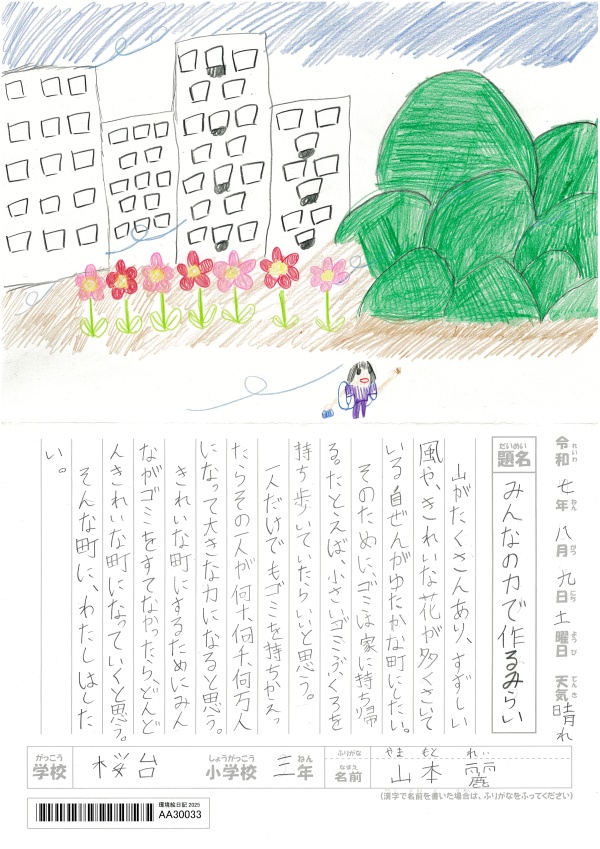 令和 七年 八月 九日 土曜日 天気 晴れ
れいわ ねん がつ にち ようび てんき
題名 みんなの力で作るみらい
だいめい
山がたくさんあり、すずしい
風や、きれいな花が多くさいて
いる自ぜんがゆたかな町にしたい。
そのために、ゴミは家に持ち帰
る。たとえば、小さいゴミぶくろを
持ち歩いていたらいいと思う。
一人だけでもゴミを持ちかえっ
たらその一人が何十何千何万人
になって大きな力になると思う。
きれいな町にするためにみん
ながゴミをすてなかったら、どんど
んきれいな町になっていくと思う。
そんな町に、わたしはした
い。
がっこう しょうがっこう ねん ふりがな やま もと れい
学校 桜台 小学校 三年 名前 山本 麗
なまえ
(漢字で名前を書いた場合は、ふりがなをふってください)
環境絵日記 2025
AA30033